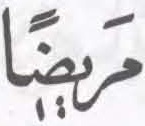 مَريضًا